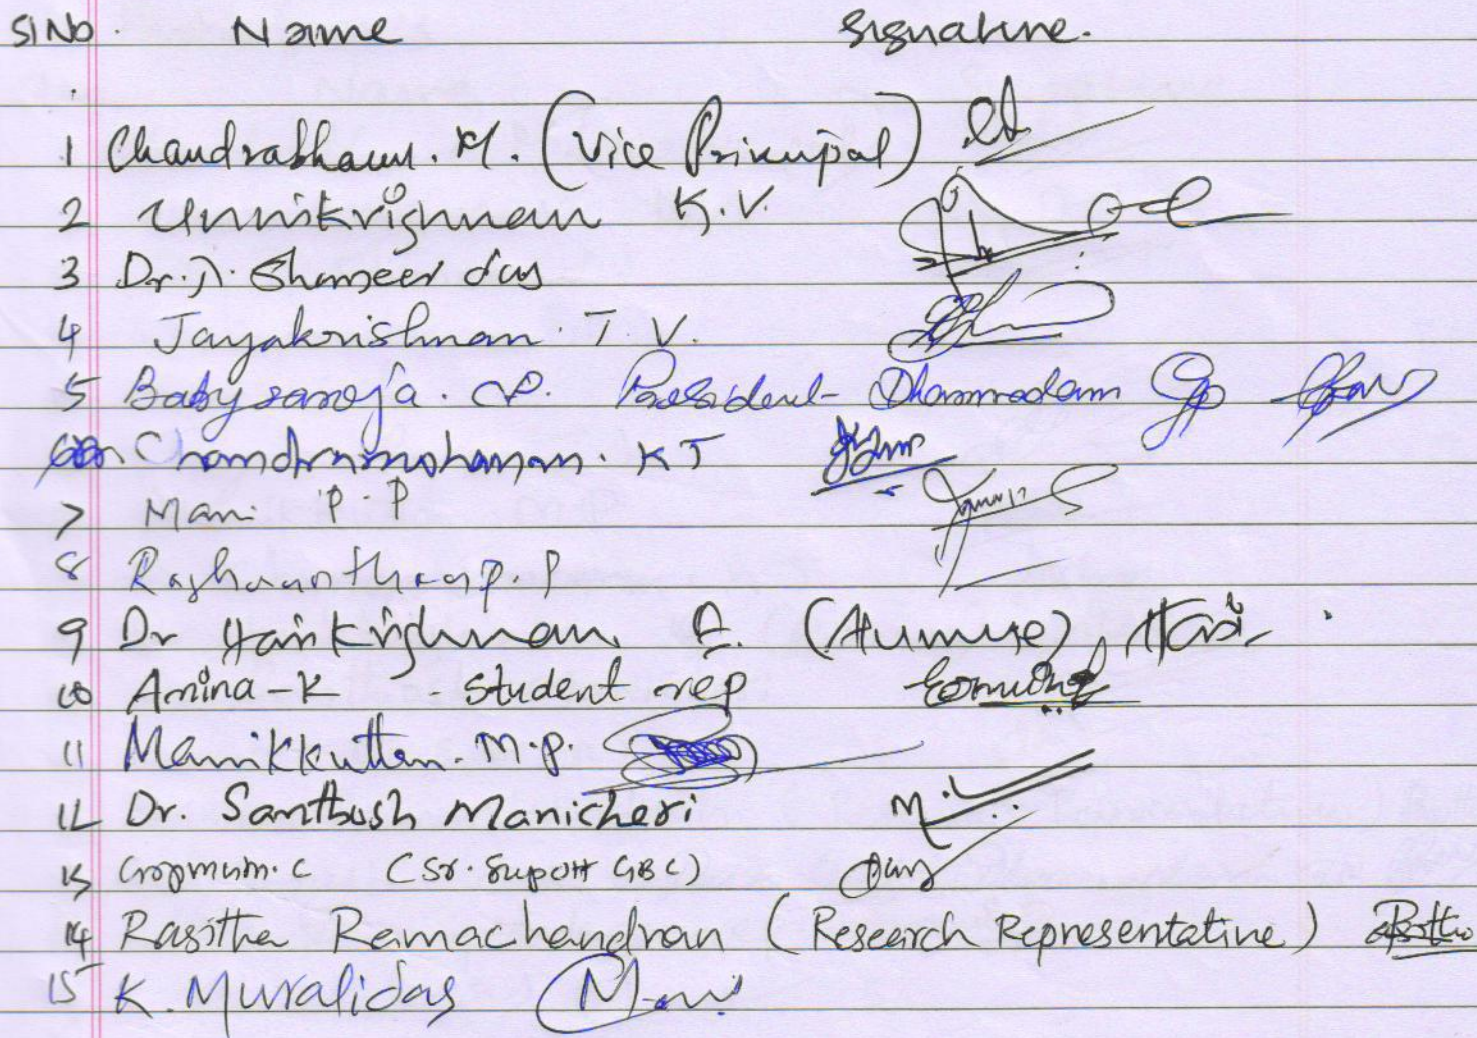 Sl No. Name Signature.
1 Chandrabhanu. K. (Vice Principal)
2 Unnikrishnan K.V.
3 Dr. Shameer das
4 Jayakrishnan T. V.
5 Babysaroja. President- Dharmadam GP
Chandramohanan. K T
7 Mani P. P
8 Raghunathan P. P
9 Dr Harikrishnan (Alumnye) Hari
10 Amina - K - Student rep
11 Manikkuttan. M.P.
12 Dr. Santhosh Manicheri
13 (Sr. Supdtt GBC)
14 Rasitha Ramachandran (Research Representative)
15 K. Muralidas